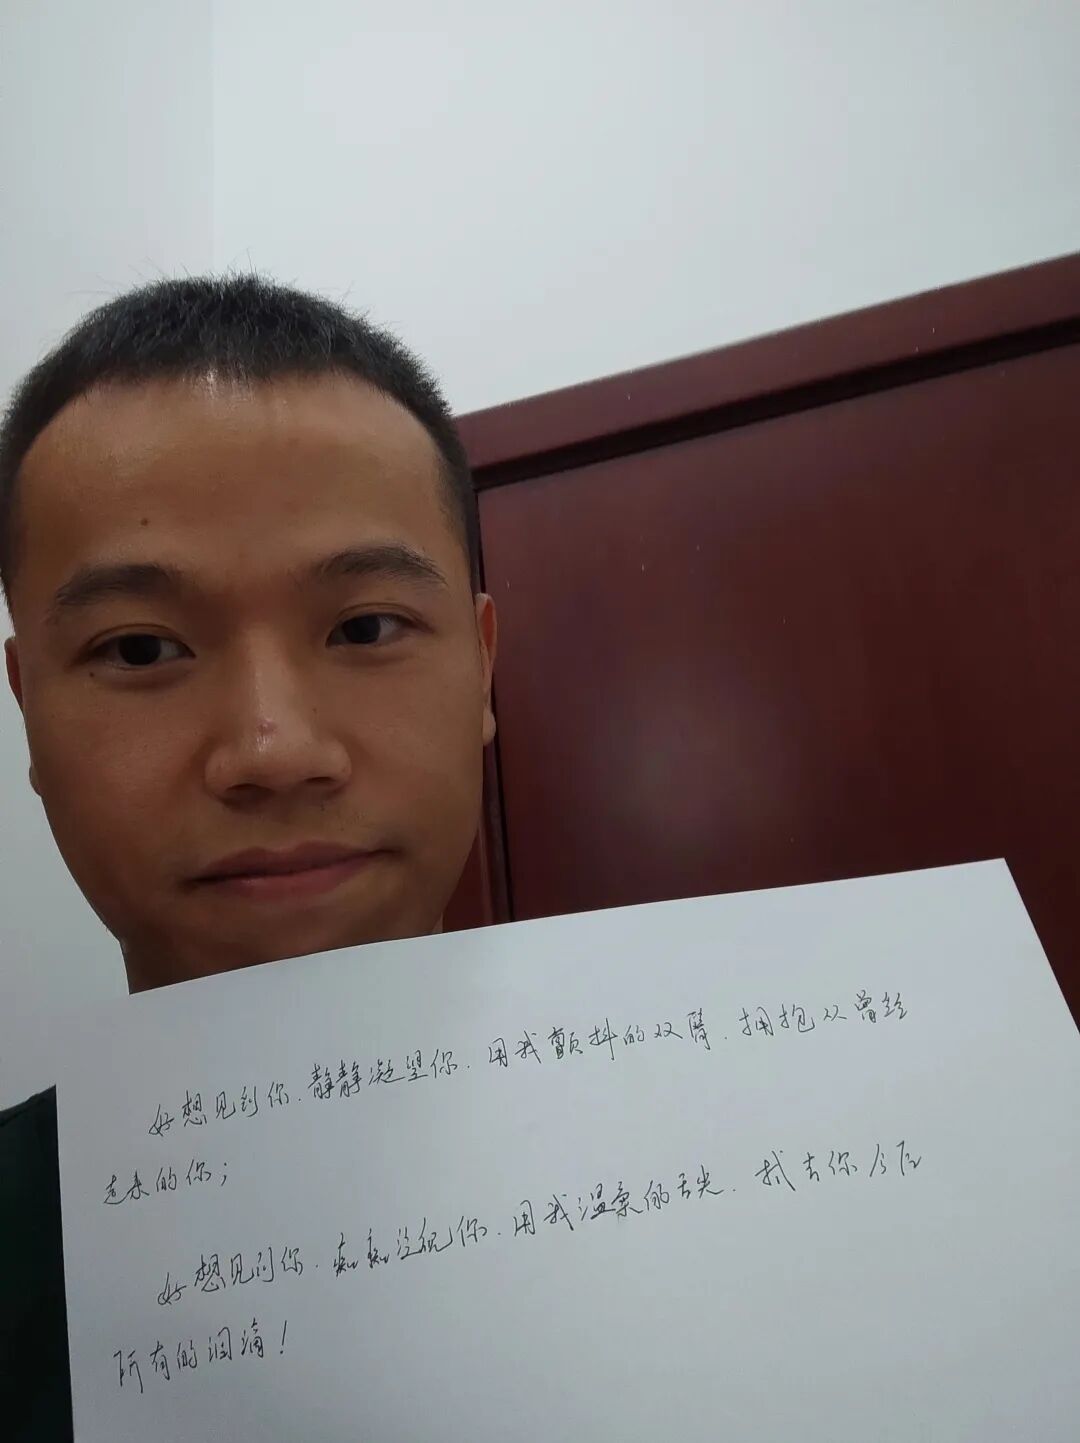 好想见到你.静静凝望你.用我颤抖的双臂.拥抱从曾经
走来的你；
好想见到你.痴痴注视你.用我温柔的舌尖.拭去你今后
所有的泪滴！